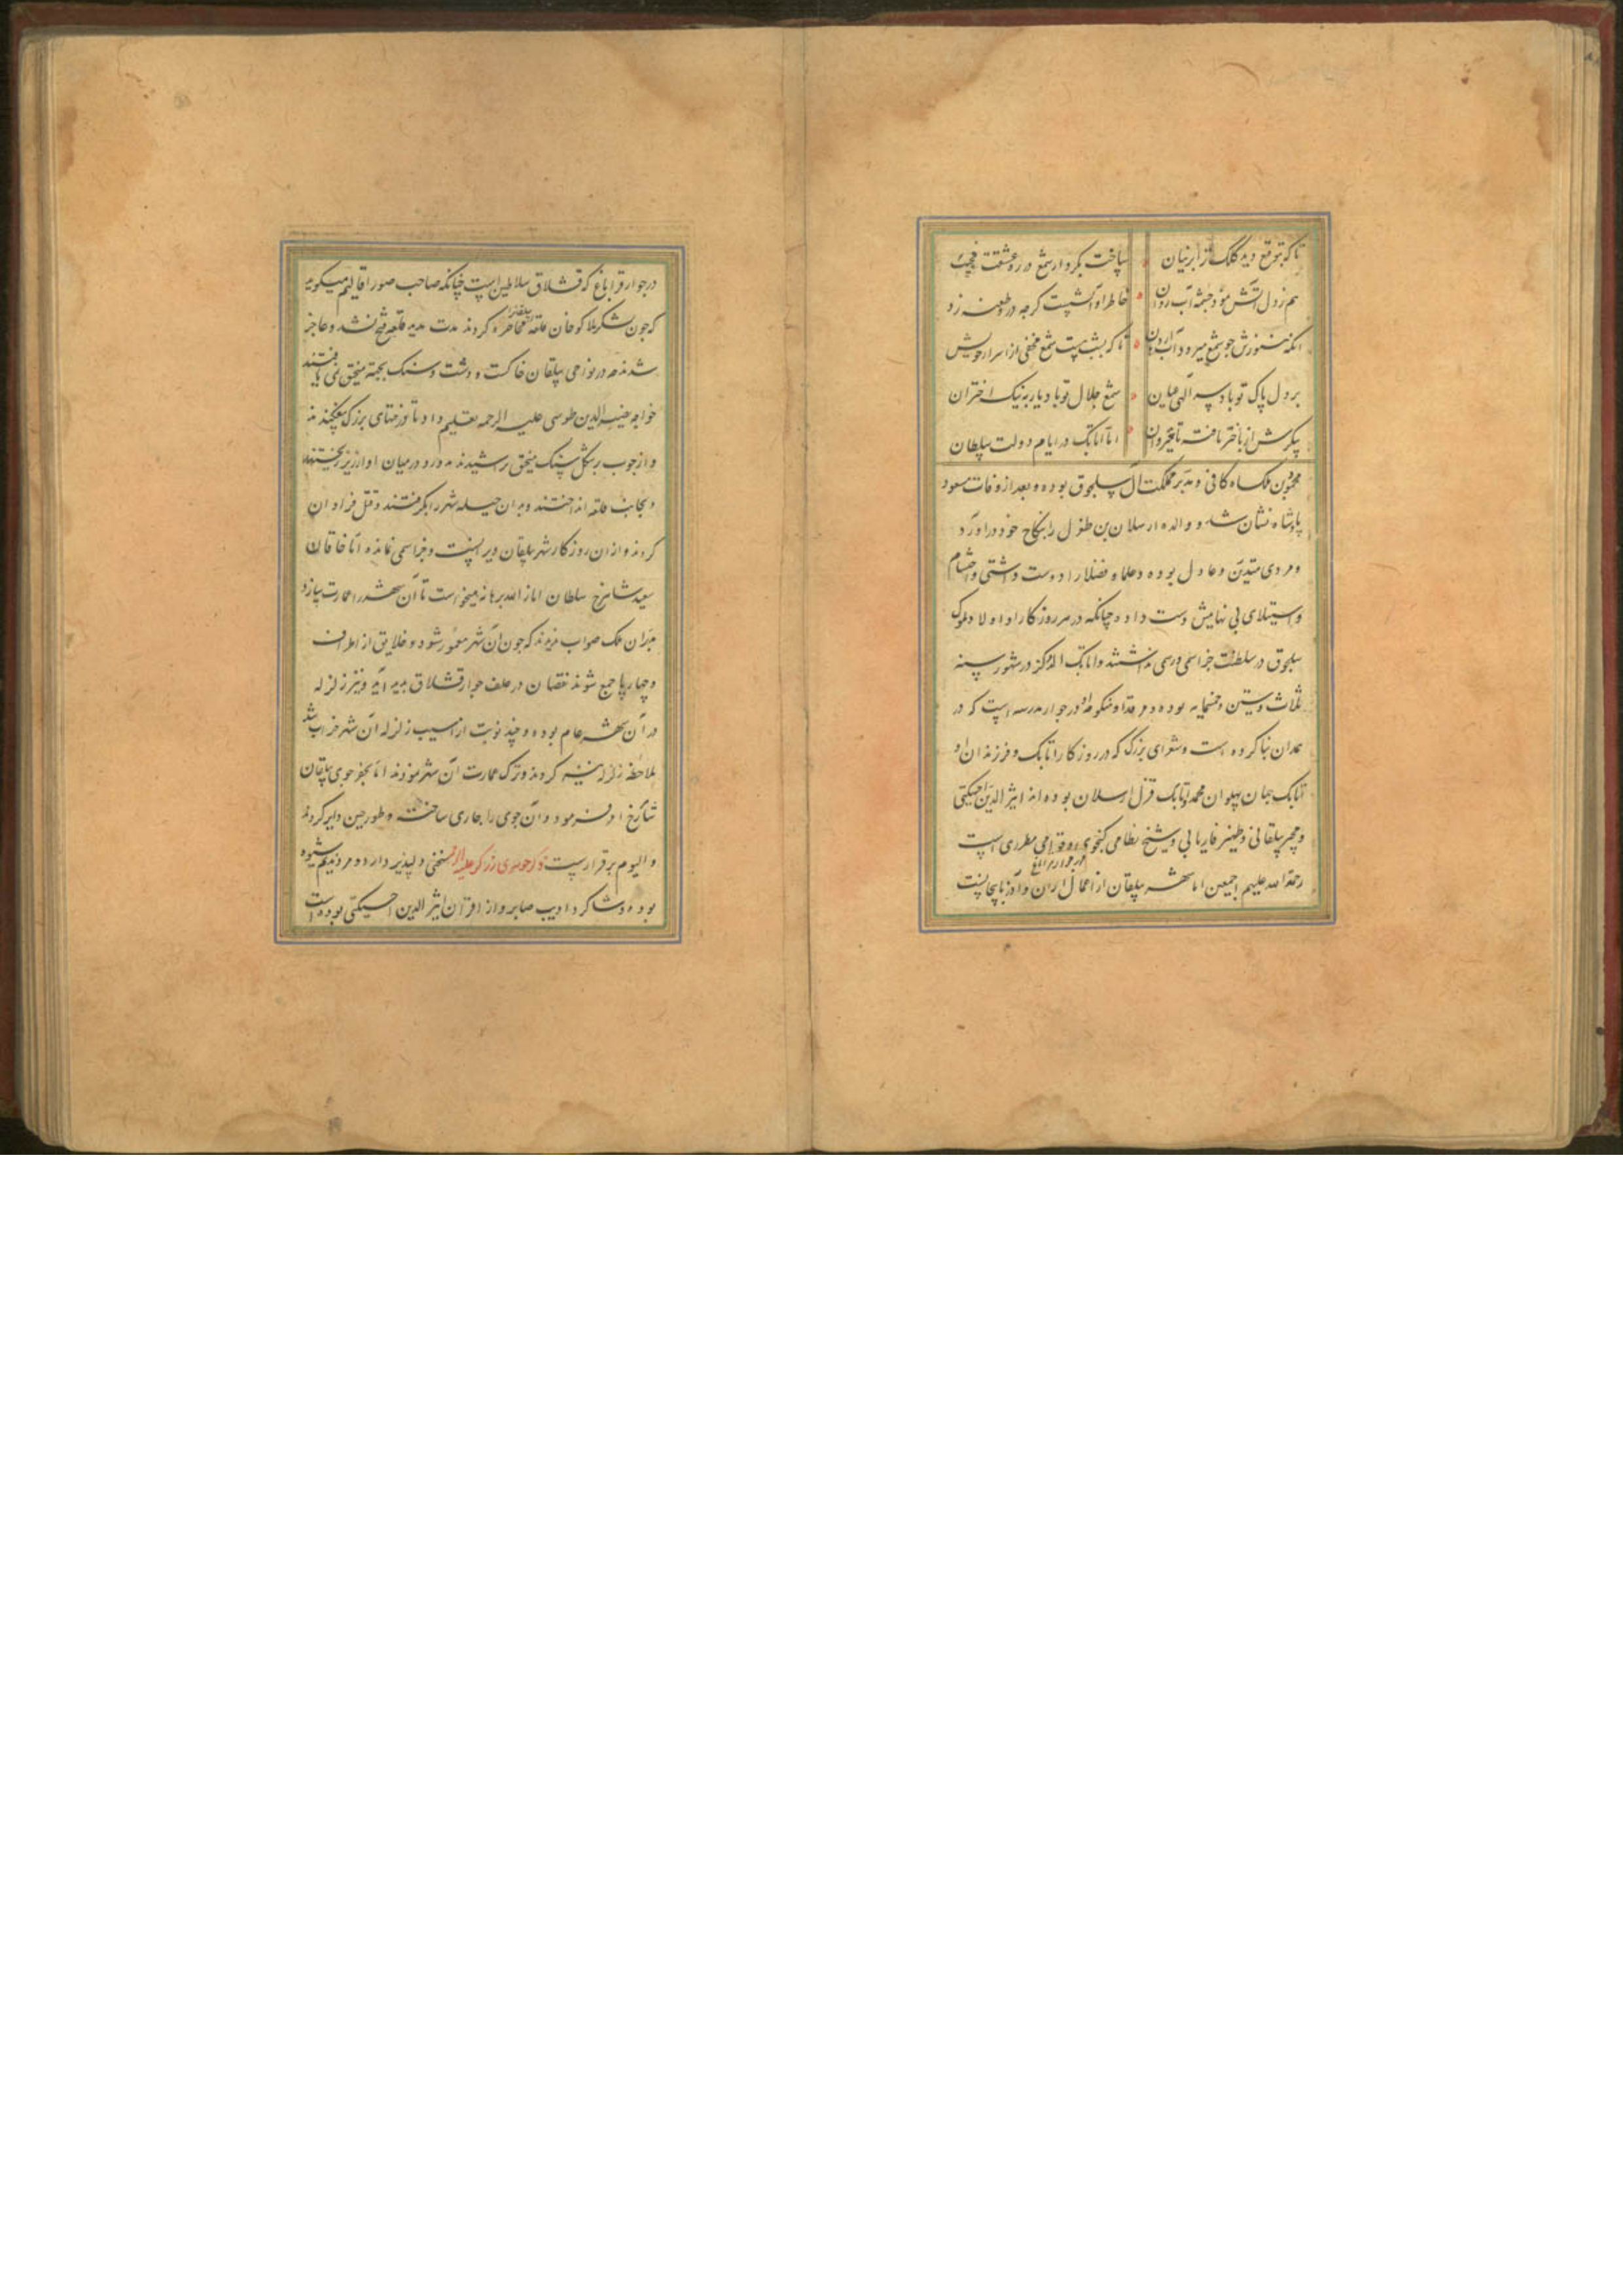 تا که بتوقع دید کلک ترا بر بنان ساخت بکردار شمع در ره عشقت
هم ز دل آتش نمود چشمه آب روان خاطر او کرچه در
انکه ز جو شمع میرود آب تا که بشب هست شمع مخفی از اسرار خویش
بر دل پاک تو باد سر الهی عیان شمع جلال تو باد یار به نیک اختران
از باختر تافته تا قیروان اما اتابک در ایام دولت سلطان
ملکشاه کافی و مدبر مملکت آل سلجوق بوده و بعد از وفات مسعود
پادشاه نشان شد و والده ارسلان بن طغرل را بنکاح خود در اورد
و مردی متدین و عادل بوده و علما و فضلا را دوست داشتی و احتشام
و استیلای بی نهایش دست داده چنانکه در هر روزکار او اولاد ملوک
سلجوق در سلطنت جز اسمی و رسمی نداشتند و اتابک الدکز در شهور سنه
ثلاث و ستین و خمسمایه بوده و مرقد او و منکوحه او در جوار مدرسه ایست که در
همدان بنا کرده است و شعرای بزرک که در روزکار اتابک و فرزندان او
اتابک جهان پهلوان محمد و اتابک قزل ارسلان بوده اند اثیر الدین اخسیکتی
و مجیر بیلقانی و ظهیر فاریابی و شیخ نظامی کنجوی و قوامی مطرزی است
رحمة الله علیهم اجمعین اما شهر بیلقان از اعمال اران و آذربایجانست
در جوار قراباغ که قشلاق سلاطین است چنانکه صاحب صور اقالیم میکوید
که چون لشکر هلاکو خان قلعه بیلقان محاصره کردند مدت مدید قلعه فتح نشد و عاجز
شدند در نواحی بیلقان خاکست و دشت و سنک بجهة منجنیق نمی یافتند
خواجه نصیر الدین طوسی علیه الرحمه تعلیم داد تا درختهای بزرک
و از چوب بر شکل سنک منجنیق تراشیدند مدور و در میان او ارزیز ریختند
و بجانب قلعه انداختند و بدان حیله شهر را بکرفتند و قتل فراوان
کردند و از ان روزکار شهر بیلقان ویرانست و جز اسمی نمانده اما خاقان
سعید شاهرخ سلطان انار الله برهانه میخواست تا آن شهر را عمارت سازد
مدبران ملک صواب ندیدند که چون آن شهر معمور شود و خلایق از اطراف
و چهارپا جمع شوند نقصان در علف جوار قشلاق پدید آید و نیز زلزله
در آن شهر عام بوده و چند نوبت از آسیب زلزله آن شهر خراب شد
ملاحظه زلزله نیز کردند و ترک عمارت آن شهر نمودند اما بحفر جوی بیلقان
شاهرخ امر فرمود و آن جوی را جاری ساختند و دایر کردند
و الیوم برقرارست ذکر جوهری زرکر علیه الرحمه سخنی دلپذیر دارد و مرد ندیم شیوه
بوده و شاکرد ادیب صابر و از اقران اثیر الدین اخسیکتی بوده است